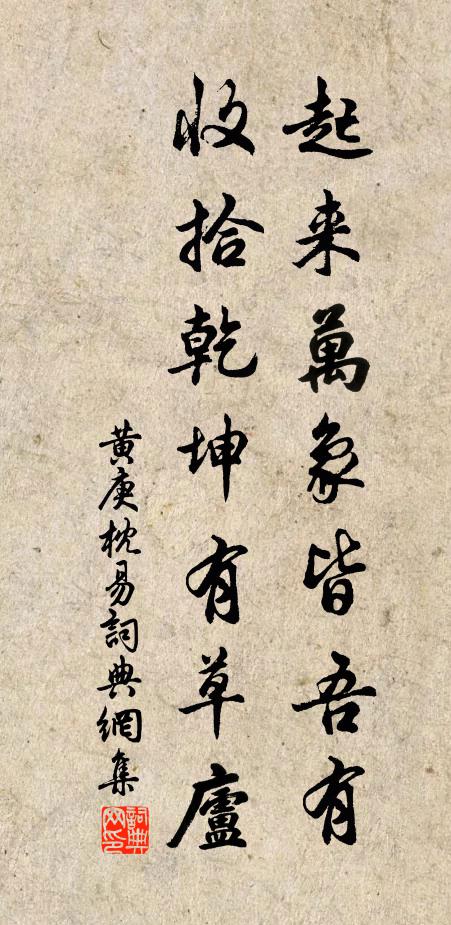 起来萬象皆吾有
收拾乾坤有草廬
黃庚枕易詞典網集
詞典网印